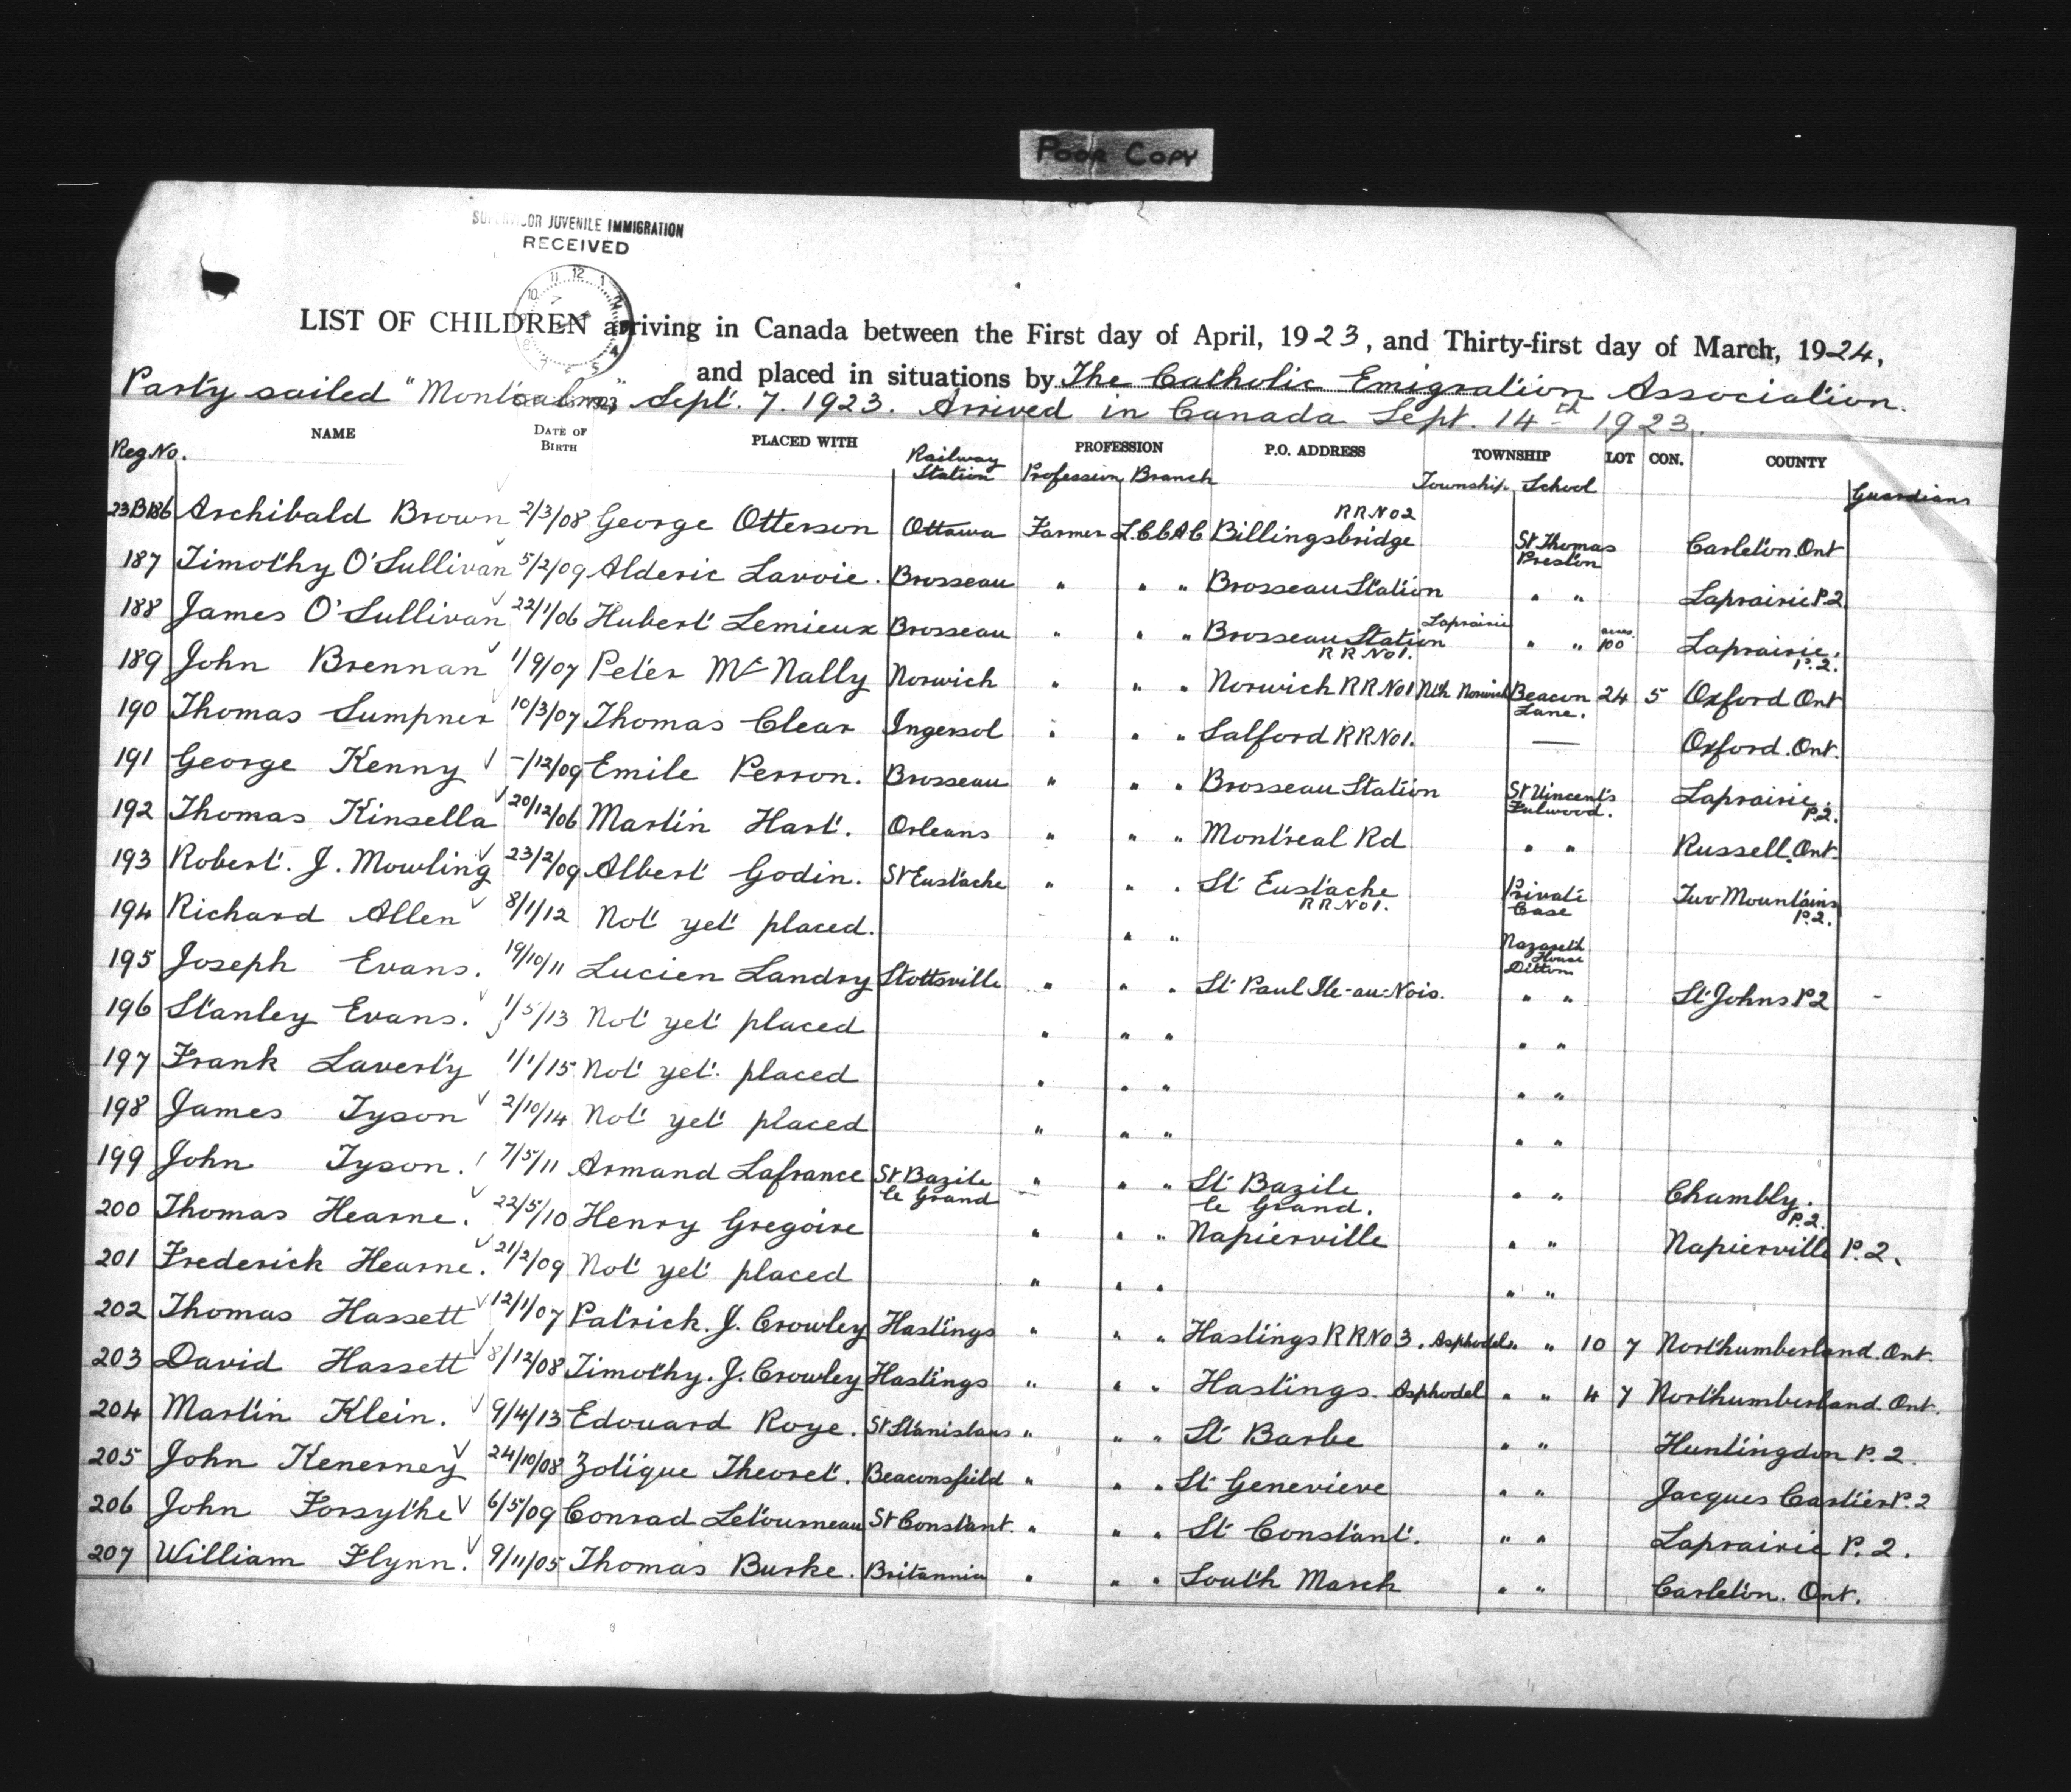 POOR COPY
SUPERVISOR JUVENILE IMMIGRATION
RECEIVED
LIST OF CHILDREN arriving in Canada between the First day of April, 1923, and Thirty-first day of March, 1924,
and placed in situations by The Catholic Emigration Association.
Party sailed "Montcalm" Sept. 7. 1923. Arrived in Canada Sept. 14th 1923.
Reg No. NAME DATE OF BIRTH PLACED WITH Railway Station PROFESSION Profession Branch P.O. ADDRESS TOWNSHIP Township School LOT CON. COUNTY Guardians
23B186 Archibald Brown 2/3/08 George Otterson Ottawa Farmer L.C.C.A.C Billingsbridge RR No 2 St Thomas Preston Carleton. Ont
187 Timothy O'Sullivan 5/2/09 Alderic Lavoie. Brosseau " " " Brosseau Station " " Laprairie P.2
188 James O'Sullivan 22/1/06 Hubert Lemieux Brosseau " " " Brosseau Station RR No 1. Laprairie " " acres 100 Laprairie. P.2.
189 John Brennan 1/9/07 Peter Mc Nally Norwich " " " Norwich RR No 1 Nth Norwich Beacon Lane. 24 5 Oxford Ont
190 Thomas Sumpner 10/3/07 Thomas Clear Ingersol " " " Salford RR No 1. — Oxford. Ont.
191 George Kenny -/12/09 Emile Perron. Brosseau " " " Brosseau Station St Vincent's Fulwood. Laprairie. P.2.
192 Thomas Kinsella 20/12/06 Martin Hart. Orleans " " " Montreal Rd " " Russell. Ont.
193 Robert. J. Mowling 23/2/09 Albert Godin. St Eustache " " " St Eustache RR No 1. Private Case Two Mountains P.2.
194 Richard Allen 8/1/12 Not yet placed. " " Nazareth House Ditton
195 Joseph Evans. 19/10/11 Lucien Landry Stottsville " " " St Paul Ile-au-Nois. " " St Johns P2 -
196 Stanley Evans. 1/5/13 Not yet placed " " " " "
197 Frank Laverty 1/1/15 Not yet. placed " " " " "
198 James Tyson 2/10/14 Not yet placed " " " " "
199 John Tyson. 7/5/11 Armand Lafrance St Bazile le Grand " " " St Bazile le Grand. " " Chambly. P.2.
200 Thomas Hearne. 22/5/10 Henry Gregoire " " " Napierville " " Napierville P.2.
201 Frederick Hearne. 21/2/09 Not yet placed " " " " "
202 Thomas Hassett 12/1/07 Patrick. J. Crowley Hastings " " " Hastings RR No 3. Asphodel " " 10 7 Northumberland. Ont.
203 David Hassett 8/12/08 Timothy. J. Crowley Hastings " " " Hastings. Asphodel " " 4 7 Northumberland. Ont.
204 Martin Klein. 9/4/13 Edouard Roye. St Stanislaus " " " St Barbe " " Huntingdon P.2.
205 John Kenerney 24/10/08 Zotique Theoret. Beaconsfield " " " St Genevieve " " Jacques Cartier P.2
206 John Forsythe 6/5/09 Conrad Letourneau St Constant. " " " St Constant. " " Laprairie P.2.
207 William Flynn. 9/11/05 Thomas Burke. Britannia " " " South March " " Carleton. Ont.